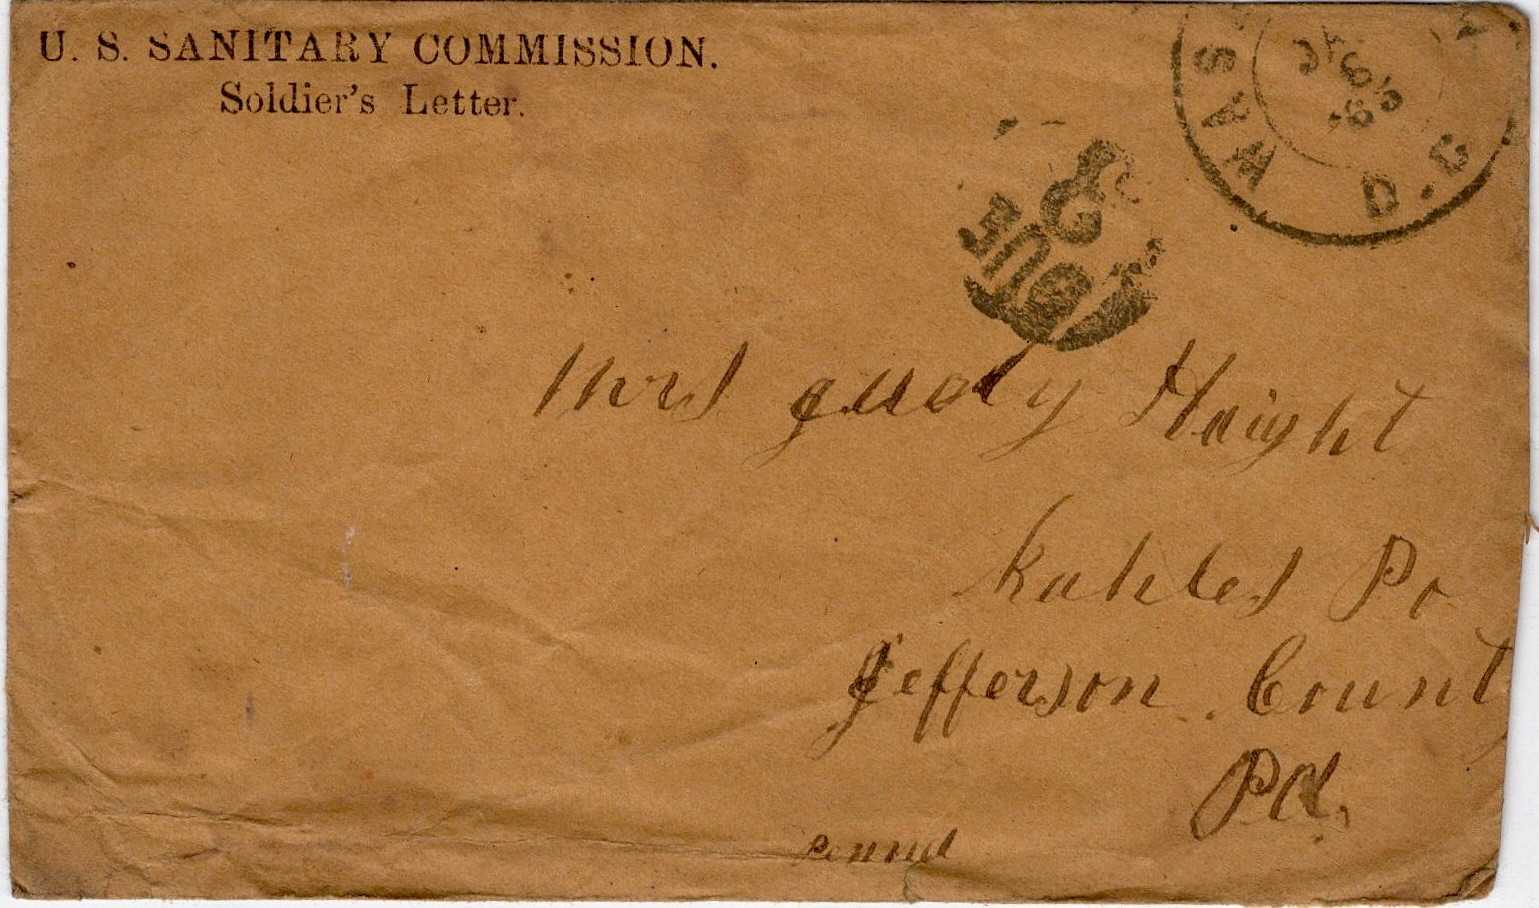 U. S. SANITARY COMMISSION.
Soldier's Letter.
WAS
D.C.
JAN
6
'65
Due
3
Mrs Judy Haight
Kahles Po
Jefferson Count
Pa.
penna